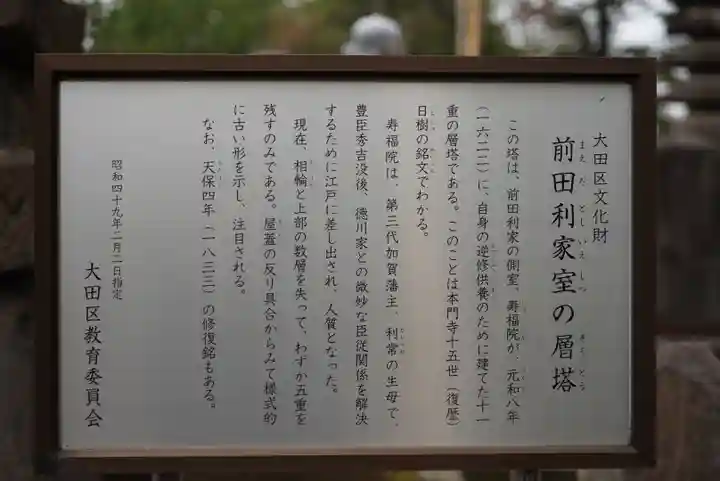 大田区文化財
前田利家室の層塔
まえだとしいえしつ そうとう
この塔は、前田利家の側室、寿福院が、元和八年
（一六二二）に、自身の逆修供養のために建てた十一
重の層塔である。このことは本門寺十五世（復歴）
日樹の銘文でわかる。
寿福院は、第三代加賀藩主、利常の生母で、
豊臣秀吉没後、徳川家との微妙な臣従関係を解決
するために江戸に差し出され、人質となった。
現在、相輪と上部の数層を失って、わずか五重を
残すのみである。屋蓋の反り具合からみて様式的
に古い形を示し、注目される。
なお、天保四年（一八三三）の修復銘もある。
昭和四十九年二月二日指定
大田区教育委員会